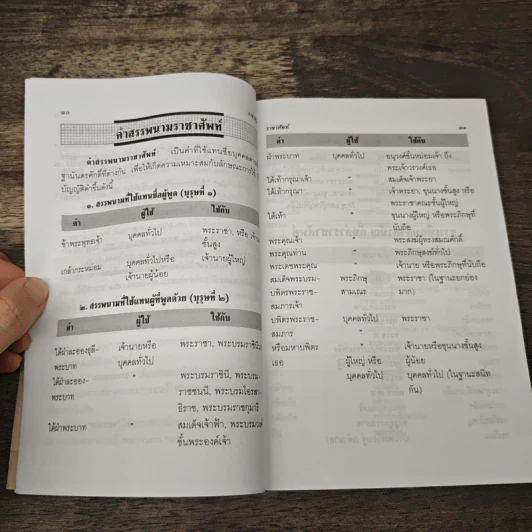 ๒๐
คำสรรพนามราชาศัพท์
คำสรรพนามราชาศัพท์ เป็นคำที่ใช้แทนชื่อบุคคลตาม
ฐานันดรศักดิ์ที่ต่างกัน เพื่อให้เกิดความเหมาะสมกับลักษณะการใช้
บัญญัติคำขึ้นดังนี้
๑. สรรพนามที่ใช้แทนชื่อผู้พูด (บุรุษที่ ๑)
คำ ผู้ใช้ ใช้กับ
ข้าพระพุทธเจ้า บุคคลทั่วไป พระราชา, หรือ เจ้า
ชั้นสูง
เกล้ากระหม่อม บุคคลทั่วไปหรือ เจ้านายผู้ใหญ่
เจ้านายผู้น้อย
๒. สรรพนามที่ใช้แทนผู้ที่พูดด้วย (บุรุษที่ ๒)
คำ ผู้ใช้ ใช้กับ
ใต้ฝ่าละอองธุลี- เจ้านายหรือ พระราชา, พระบรมราชินี
พระบาท บุคคลทั่วไป
ใต้ฝ่าละออง- " พระบรมราชินี, พระบรม-
พระบาท ราชชนนี, พระบรมโอรสา-
ธิราช, พระบรมราชกุมารี
ใต้ฝ่าพระบาท " สมเด็จเจ้าฟ้า, พระบรมวงศ์
ชั้นพระองค์เจ้า
ราชาศัพท์ ๒๑
คำ ผู้ใช้ ใช้กับ
ฝ่าพระบาท บุคคลทั่วไป อนุวงศ์ชั้นหม่อมเจ้า ถึง
พระเจ้าวรวงศ์เธอ
ใต้เท้ากรุณาเจ้า " สมเด็จเจ้าพระยา
ใต้เท้ากรุณา " เจ้าพระยา, ขุนนางชั้นสูง หรือ
พระราชาคณะชั้นผู้ใหญ่
ใต้เท้า " ขุนนางผู้ใหญ่ หรือพระภิกษุที่
นับถือ
พระคุณเจ้า " พระสงฆ์ผู้ทรงสมณศักดิ์
พระคุณท่าน " พระภิกษุสงฆ์ทั่วไป
พระเดชพระคุณ " เจ้านาย หรือพระภิกษุที่นับถือ
สมเด็จพระบรม- พระภิกษุ พระราชา (ในฐานะยกย่อง
บพิตรพระราช- สามเณร มาก)
สมภารเจ้า
บพิตรพระราช- บุคคลทั่วไป พระราชา
สมภาร
หรือมหาบพิตร " เจ้านายหรือขุนนางชั้นสูง
เธอ ผู้ใหญ่ หรือ ผู้น้อย
บุคคลทั่วไป บุคคลทั่วไป (ในฐานะสนิท
กัน)